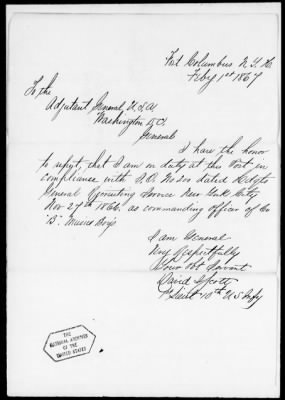 Fort Columbus N.Y.H.
Feby 1st 1867
To the
Adjutant General U.S.A.
Washington D.C.
General
I have the honor
to report that I am on duty at this Post in
compliance with S.O. No dated Hedqts
General Recruiting Service New York City
Nov 27th 1866. as commanding officer of Co
"B". Music Boys
I am General
Very Respectfully
Your obt Servant
David Scott
Lieut 10th U.S. Infy
THE
NATIONAL ARCHIVES
OF THE
UNITED STATES